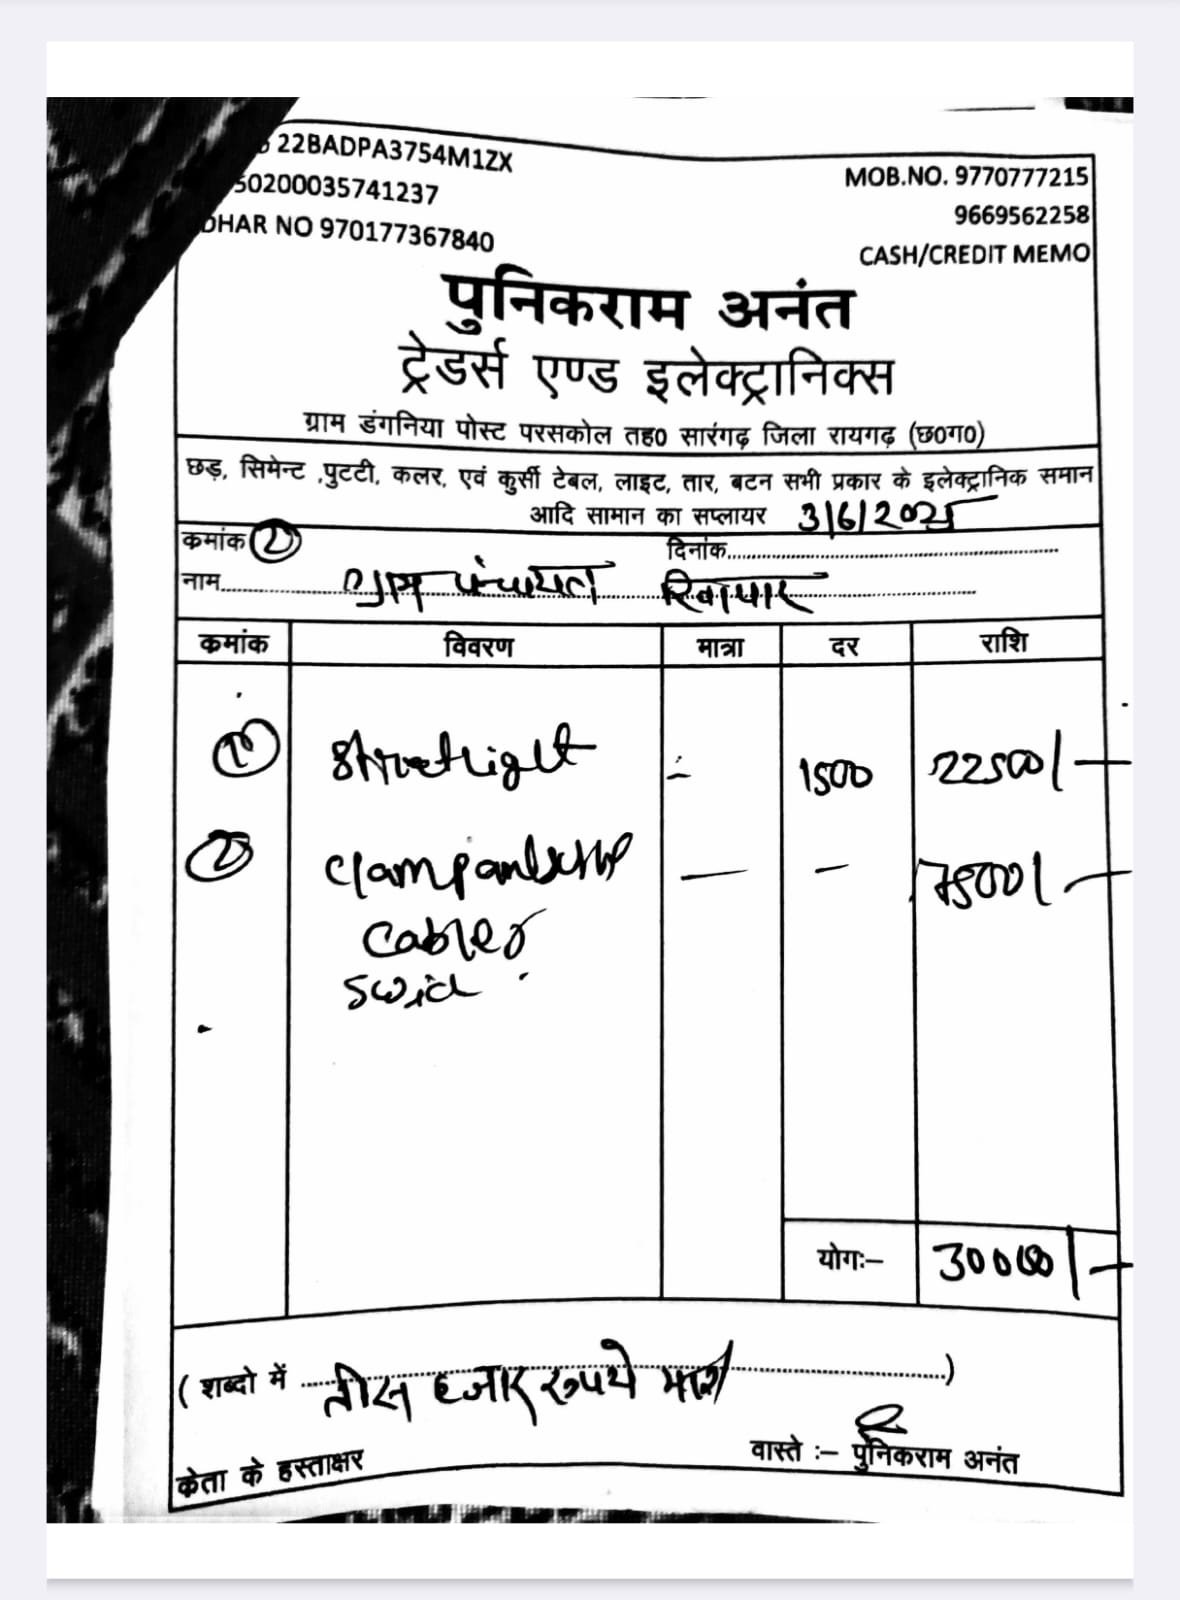 22BADPA3754M1ZX
50200035741237
DHAR NO 970177367840
MOB.NO. 9770777215
9669562258
CASH/CREDIT MEMO
पुनिकराम अनंत
ट्रेडर्स एण्ड इलेक्ट्रानिक्स
ग्राम डंगनिया पोस्ट परसकोल तह0 सारंगढ़ जिला रायगढ़ (छ0ग0)
छड़, सिमेन्ट ,पुटटी, कलर, एवं कुर्सी टेबल, लाइट, तार, बटन सभी प्रकार के इलेक्ट्रानिक समान
आदि सामान का सप्लायर 3/6/2025
कमांक 2 दिनांक
नाम ग्राम पंचायत
कमांक विवरण मात्रा दर राशि
1 Streetlight 1500 22500/-
2 - - 7500/-
cable
योगः– 30000/-
( शब्दो में तीस हजार रूपये मात्र )
वास्ते :– पुनिकराम अनंत
केता के हस्ताक्षर